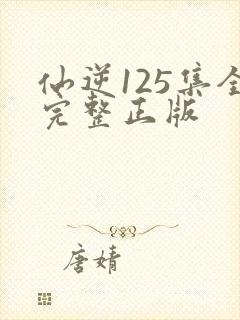 仙逆125集全
完整正版
唐婧